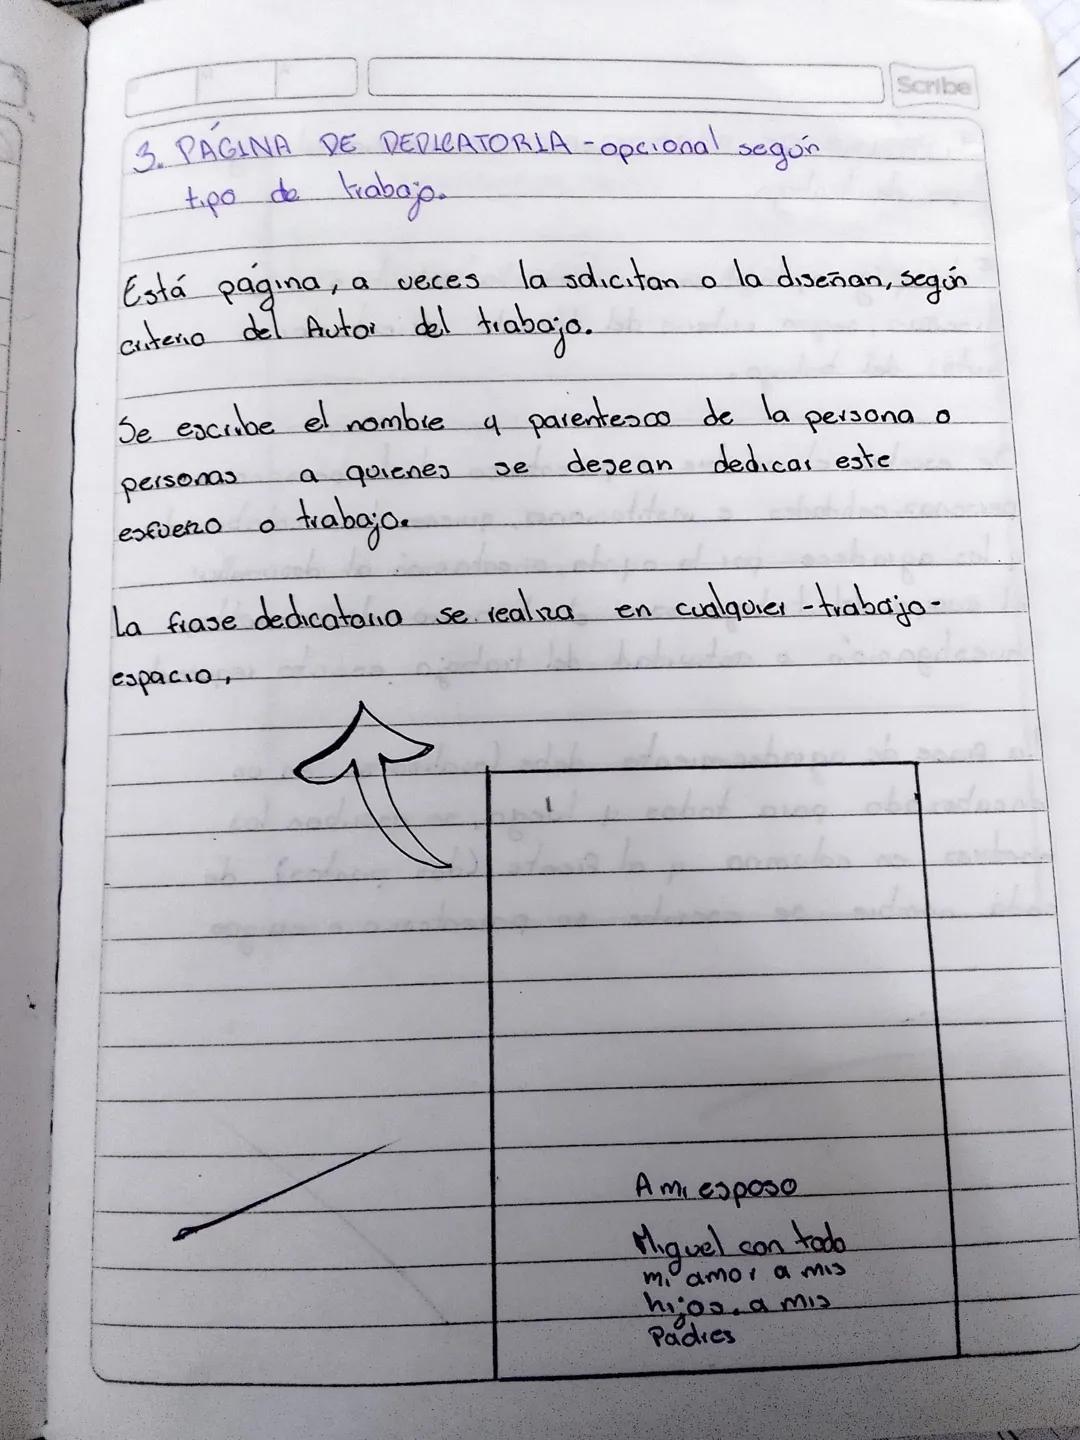 Scribe
3. PÁGINA DE DEDICATORIA - opcional según
tipo de trabajo.
Está página, a veces la solicitan o la diseñan, según
criterio del Autor del trabajo.
Se escribe el nombre y parentesco de la persona o
personas a quienes se desean dedicar este
esfuerzo o trabajo.
La frase dedicatoria se realiza en cualquier -trabajo-
espacio,
A mi esposo
Miguel con todo
mi amor a mis
hijos. a mis
Padres